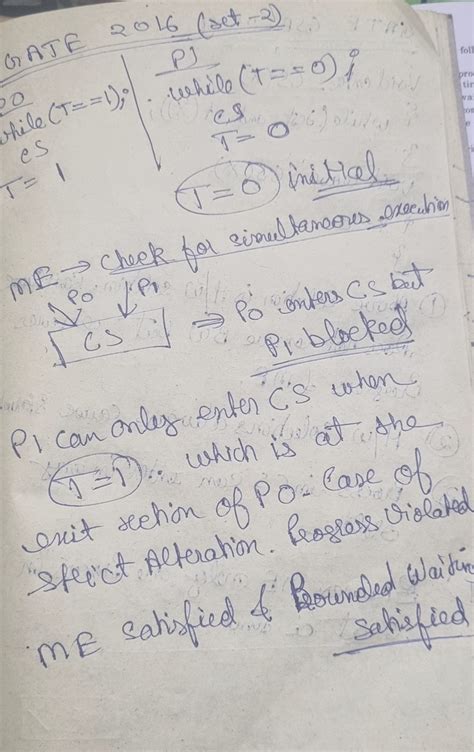 GATE 2016 (set-2)
P0
while(T==1);
CS
T=1
P1
while(T==0);
CS
T=0
T=0 initial
ME → Check for simultaneous execution
P0 P1
CS ⇒ P0 enters CS but
P1 blocked
P1 can only enter CS when
T=1. which is at the
exit section of P0. Case of
strict Alteration. Progress violated
ME satisfied & Bounded Waiting
satisfied